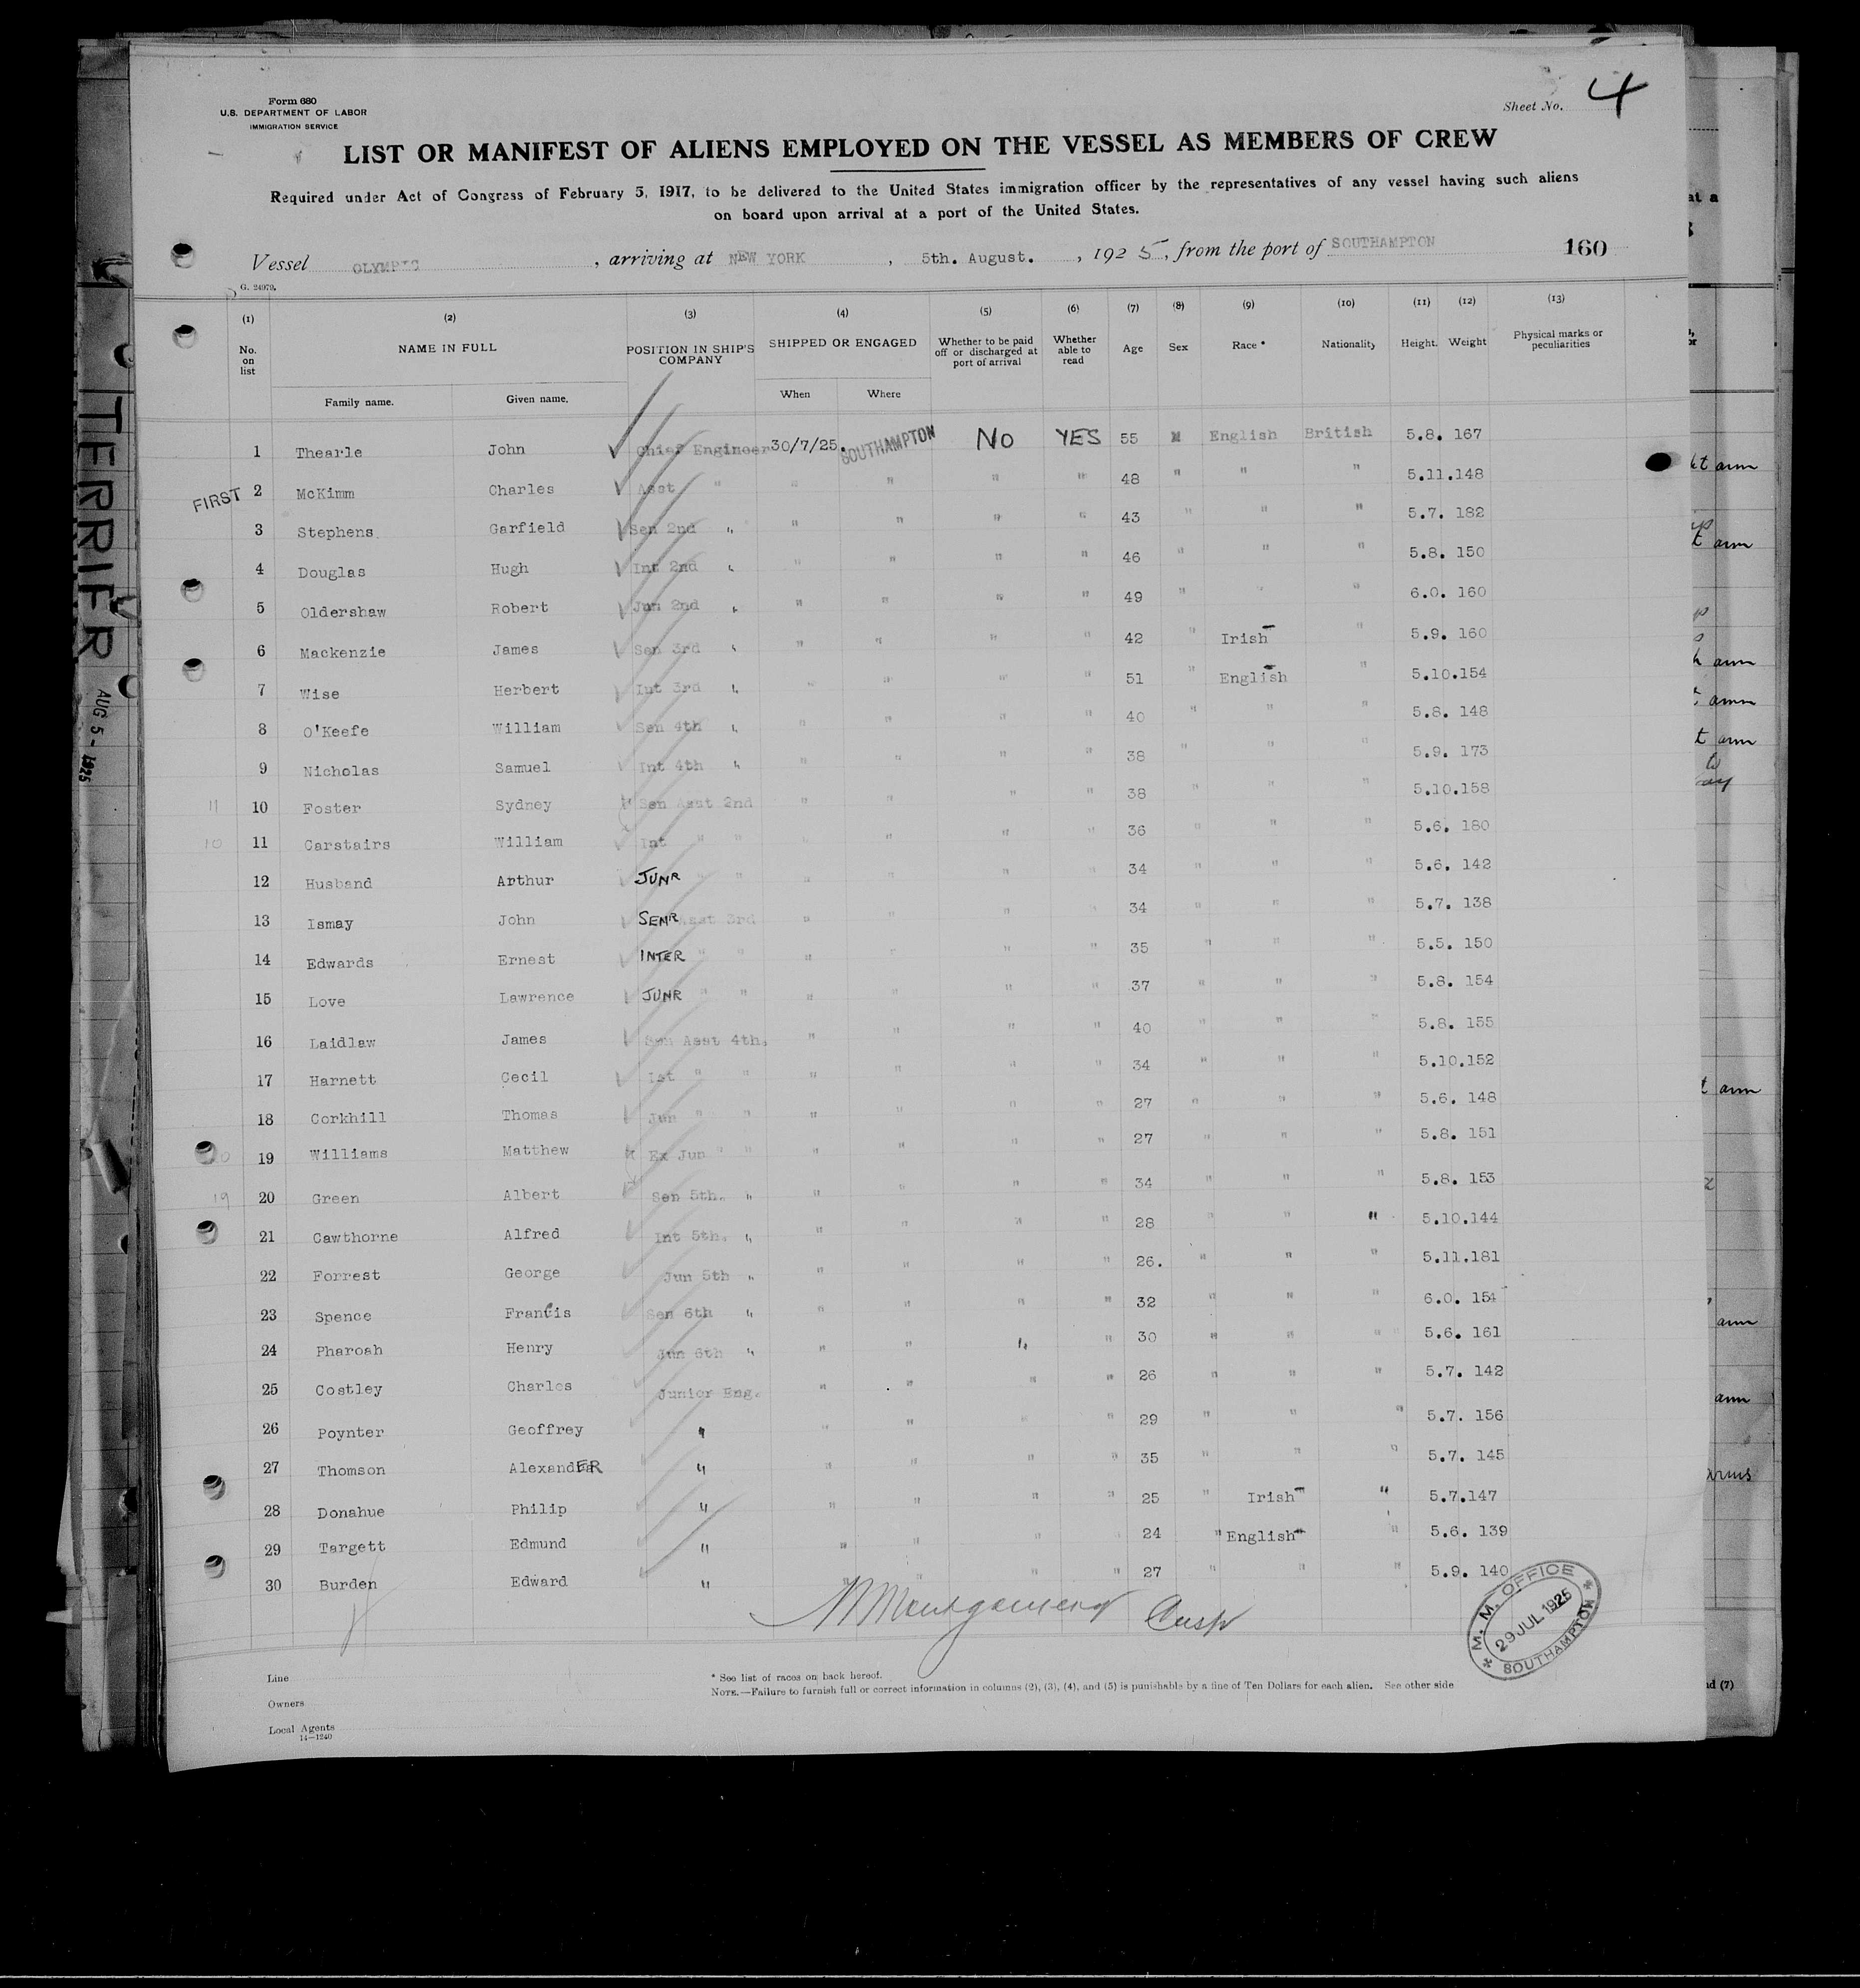 Form 680
U.S. DEPARTMENT OF LABOR
IMMIGRATION SERVICE
Sheet No. 4
LIST OR MANIFEST OF ALIENS EMPLOYED ON THE VESSEL AS MEMBERS OF CREW
Required under Act of Congress of February 5, 1917, to be delivered to the United States immigration officer by the representatives of any vessel having such aliens
on board upon arrival at a port of the United States.
Vessel OLYMPIC, arriving at NEW YORK, 5th. August., 1925, from the port of SOUTHAMPTON 160
G. 24979.
(1) (2) (3) (4) (5) (6) (7) (8) (9) (10) (11) (12) (13)
No. on list NAME IN FULL POSITION IN SHIP'S COMPANY SHIPPED OR ENGAGED Whether to be paid off or discharged at port of arrival Whether able to read Age Sex Race * Nationality Height. Weight Physical marks or peculiarities
Family name. Given name. When Where
1 Thearle John Chief Engineer 30/7/25. SOUTHAMPTON NO YES 55 M English British 5.8. 167
FIRST 2 McKimm Charles Asst " " " " " 48 " " " 5.11.148
3 Stephens Garfield Sen 2nd " " " " " 43 " " " 5.7. 182
4 Douglas Hugh Int 2nd " " " " " 46 " " " 5.8. 150
5 Oldershaw Robert Jun 2nd " " " " " 49 " " " 6.0. 160
6 Mackenzie James Sen 3rd " " " " " 42 " Irish " 5.9. 160
7 Wise Herbert Int 3rd " " " " " 51 " English " 5.10.154
8 O'Keefe William Sen 4th " " " " " 40 " " " 5.8. 148
9 Nicholas Samuel Int 4th " " " " " 38 " " " 5.9. 173
11 10 Foster Sydney Sen Asst 2nd " " " " 38 " " " 5.10.158
10 11 Carstairs William Int " " " " " " 36 " " " 5.6. 180
12 Husband Arthur JUNR " " " " " " 34 " " " 5.6. 142
13 Ismay John SENR Asst 3rd " " " " 34 " " " 5.7. 138
14 Edwards Ernest INTER " " " " " " 35 " " " 5.5. 150
15 Love Lawrence JUNR " " " " " " 37 " " " 5.8. 154
16 Laidlaw James Sen Asst 4th. " " " " 40 " " " 5.8. 155
17 Harnett Cecil Int " " " " " " 34 " " " 5.10.152
18 Corkhill Thomas Jun " " " " " " 27 " " " 5.6. 148
20 19 Williams Matthew Ex Jun " " " " " " 27 " " " 5.8. 151
19 20 Green Albert Sen 5th. " " " " " 34 " " " 5.8. 153
21 Cawthorne Alfred Int 5th. " " " " " 28 " " " 5.10.144
22 Forrest George Jun 5th " " " " " 26. " " " 5.11.181
23 Spence Francis Sen 6th " " " " " 32 " " " 6.0. 154
24 Pharoah Henry Jun 6th " " " " " 30 " " " 5.6. 161
25 Costley Charles Junior Eng. " " " " 26 " " " 5.7. 142
26 Poynter Geoffrey " " " " " 29 " " " 5.7. 156
27 Thomson AlexandER " " " " " 35 " " " 5.7. 145
28 Donahue Philip " " " " " 25 " Irish " 5.7.147
29 Targett Edmund " " " " " 24 " English " 5.6. 139
30 Burden Edward " " " " " 27 " " " 5.9. 140
Montgomery
M. M. OFFICE 29 JUL 1925 SOUTHAMPTON
Line
Owners
Local Agents
14—1240
* See list of races on back hereof.
NOTE.—Failure to furnish full or correct information in columns (2), (3), (4), and (5) is punishable by a fine of Ten Dollars for each alien. See other side
TERRIER
AUG 5 - 1925
at a
arm
arm
arm
arm
arm
arm
arm
arm
arms
d (7)